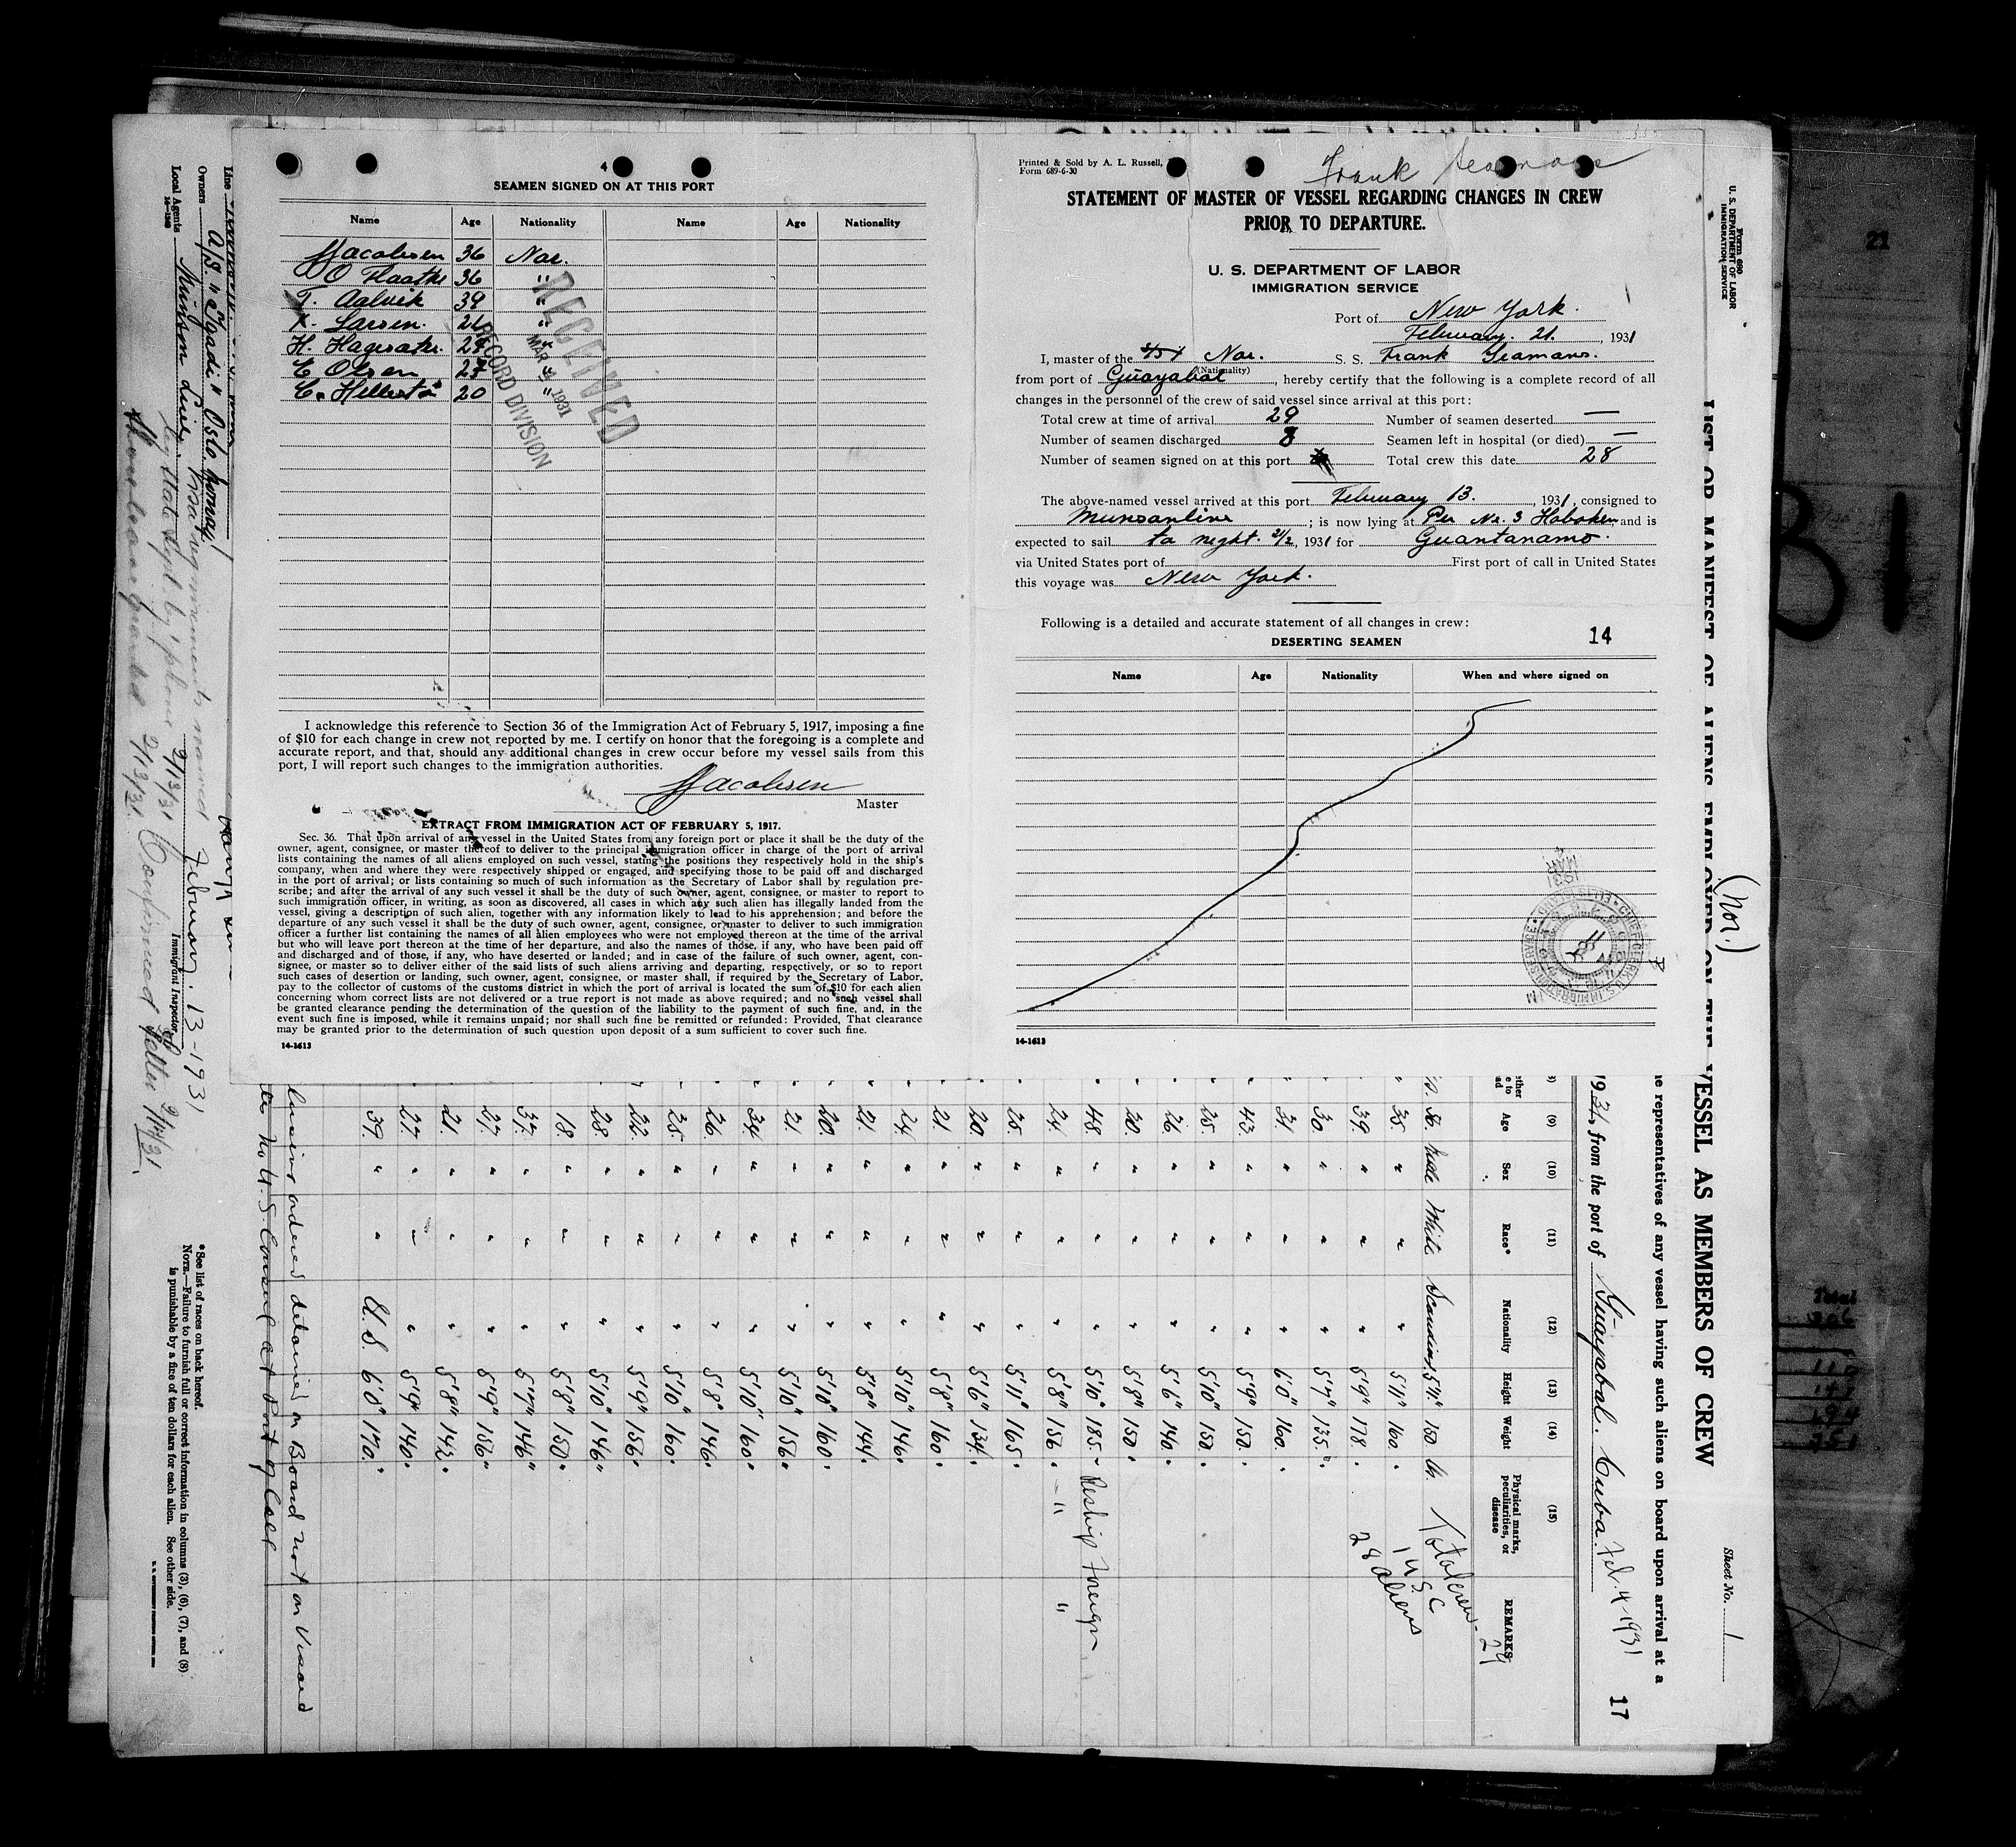 4
SEAMEN SIGNED ON AT THIS PORT
Name Age Nationality Name Age Nationality
Jacobsen 36 Nor.
O 36 "
T. Aalvik 39 "
Larsen. "
H. "
Olsen "
20 "
RECEIVED
MAR 1931
RECORD DIVISION
I acknowledge this reference to Section 36 of the Immigration Act of February 5, 1917, imposing a fine
of $10 for each change in crew not reported by me. I certify on honor that the foregoing is a complete and
accurate report, and that, should any additional changes in crew occur before my vessel sails from this
port, I will report such changes to the immigration authorities.
Jacobsen
Master
EXTRACT FROM IMMIGRATION ACT OF FEBRUARY 5, 1917.
Sec. 36. That upon arrival of any vessel in the United States from any foreign port or place it shall be the duty of the
owner, agent, consignee, or master thereof to deliver to the principal immigration officer in charge of the port of arrival
lists containing the names of all aliens employed on such vessel, stating the positions they respectively hold in the ship's
company, when and where they were respectively shipped or engaged, and specifying those to be paid off and discharged
in the port of arrival; or lists containing so much of such information as the Secretary of Labor shall by regulation pre-
scribe; and after the arrival of any such vessel it shall be the duty of such owner, agent, consignee, or master to report to
such immigration officer, in writing, as soon as discovered, all cases in which any such alien has illegally landed from the
vessel, giving a description of such alien, together with any information likely to lead to his apprehension; and before the
departure of any such vessel it shall be the duty of such owner, agent, consignee, or master to deliver to such immigration
officer a further list containing the names of all alien employees who were not employed thereon at the time of the arrival
but who will leave port thereon at the time of her departure, and also the names of those, if any, who have been paid off
and discharged and of those, if any, who have deserted or landed; and in case of the failure of such owner, agent, con-
signee, or master so to deliver either of the said lists of such aliens arriving and departing, respectively, or so to report
such cases of desertion or landing, such owner, agent, consignee, or master shall, if required by the Secretary of Labor,
pay to the collector of customs of the customs district in which the port of arrival is located the sum of $10 for each alien
concerning whom correct lists are not delivered or a true report is not made as above required; and no such vessel shall
be granted clearance pending the determination of the question of the liability to the payment of such fine, and, in the
event such fine is imposed, while it remains unpaid; nor shall such fine be remitted or refunded: Provided, That clearance
may be granted prior to the determination of such question upon deposit of a sum sufficient to cover such fine.
14-1613
Printed & Sold by A. L. Russell,
Form 689-6-30
Frank Seamans
STATEMENT OF MASTER OF VESSEL REGARDING CHANGES IN CREW
PRIOR TO DEPARTURE.
U. S. DEPARTMENT OF LABOR
IMMIGRATION SERVICE
Port of New York.
February. 21., 1931
I, master of the Nor. S. S. Frank Seamans.
(Nationality)
from port of Guayabal, hereby certify that the following is a complete record of all
changes in the personnel of the crew of said vessel since arrival at this port:
Total crew at time of arrival 29 Number of seamen deserted —
Number of seamen discharged 8 Seamen left in hospital (or died) —
Number of seamen signed on at this port Total crew this date 28
The above-named vessel arrived at this port February 13., 1931, consigned to
Munsonline; is now lying at Pier Nr. 3 Hoboken, and is
expected to sail to night. 21/2, 1931 for Guantanamo.
via United States port of First port of call in United States
this voyage was New York.
Following is a detailed and accurate statement of all changes in crew:
DESERTING SEAMEN 14
Name Age Nationality When and where signed on
MAR 1931
14-1613
Form 680
U. S. DEPARTMENT OF LABOR
IMMIGRATION SERVICE
LIST OR MANIFEST OF ALIENS EMPLOYED ON THE VESSEL AS MEMBERS OF CREW
(Nor.)
Sheet No. 1
representatives of any vessel having such aliens on board upon arrival at a
1931, from the port of Guayabal. Cuba. Feb. 4-1931
17
(9) (10) (11) (12) (13) (14) (15)
Age Sex Race* Nationality Height Weight Physical marks, peculiarities, or disease REMARKS
36. Male White 5'11" 150. lb.
35. " " " 5'11" 160. "
39. " " " 5'9" 178. "
30. " " " 5'7" 135. "
31. " " " 6'0" 160. "
43. " " " 5'9" 150. "
25. " " " 5'10" 150. "
26. " " " 5'6" 140. "
20. " " " 5'8" 150 "
48. " " " 5'10" 185. " Reship Foreign
24. " " " 5'8" 156. " - " - "
25. " " " 5'11" 165. "
20. " " " 5'6" 134. "
21. " " " 5'8" 160. "
24. " " " 5'10" 146. "
21. " " " 5'8" 144. "
20. " " " 5'10" 160. "
21. " " " 5'10" 156. "
34. " " " 5'10" 160. "
26. " " " 5'8" 146. "
25. " " " 5'10" 160. "
22. " " " 5'9" 156. "
28. " " " 5'10" 146. "
18. " " " 5'8" 150. "
37. " " " 5'7" 146. "
27. " " " 5'9" 156. "
21. " " " 5'8" 142. "
27. " " " 5'9" 140. "
39. " " U.S. 6'0" 170. "
Total crew - 29
1 USC
28 aliens
ordered detained on Board not on Visaed
No U.S. Consul at Port of Call
Line
Owners A/S. "Ygadi" Oslo Norway.
Local Agents Munson Line.
February. 13-1931
Immigrant Inspector
Visa requirements waived
by State Dept by 'phone 2/13/31
Shore leave granted 2/13/31 Confirmed letter 2/14/31
* See list of races on back hereof.
NOTE.—Failure to furnish full or correct information in columns (3), (6), (7), and (8)
is punishable by a fine of ten dollars for each alien. See other side.
21
31
Total